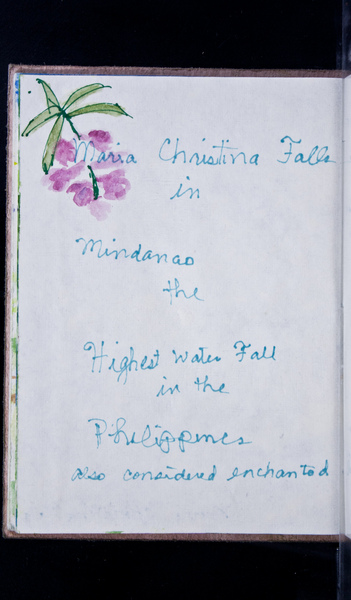 Maria Christina Falls
in
Mindanao
the
Highest Water Fall
in the
Philippines
also considered enchanted